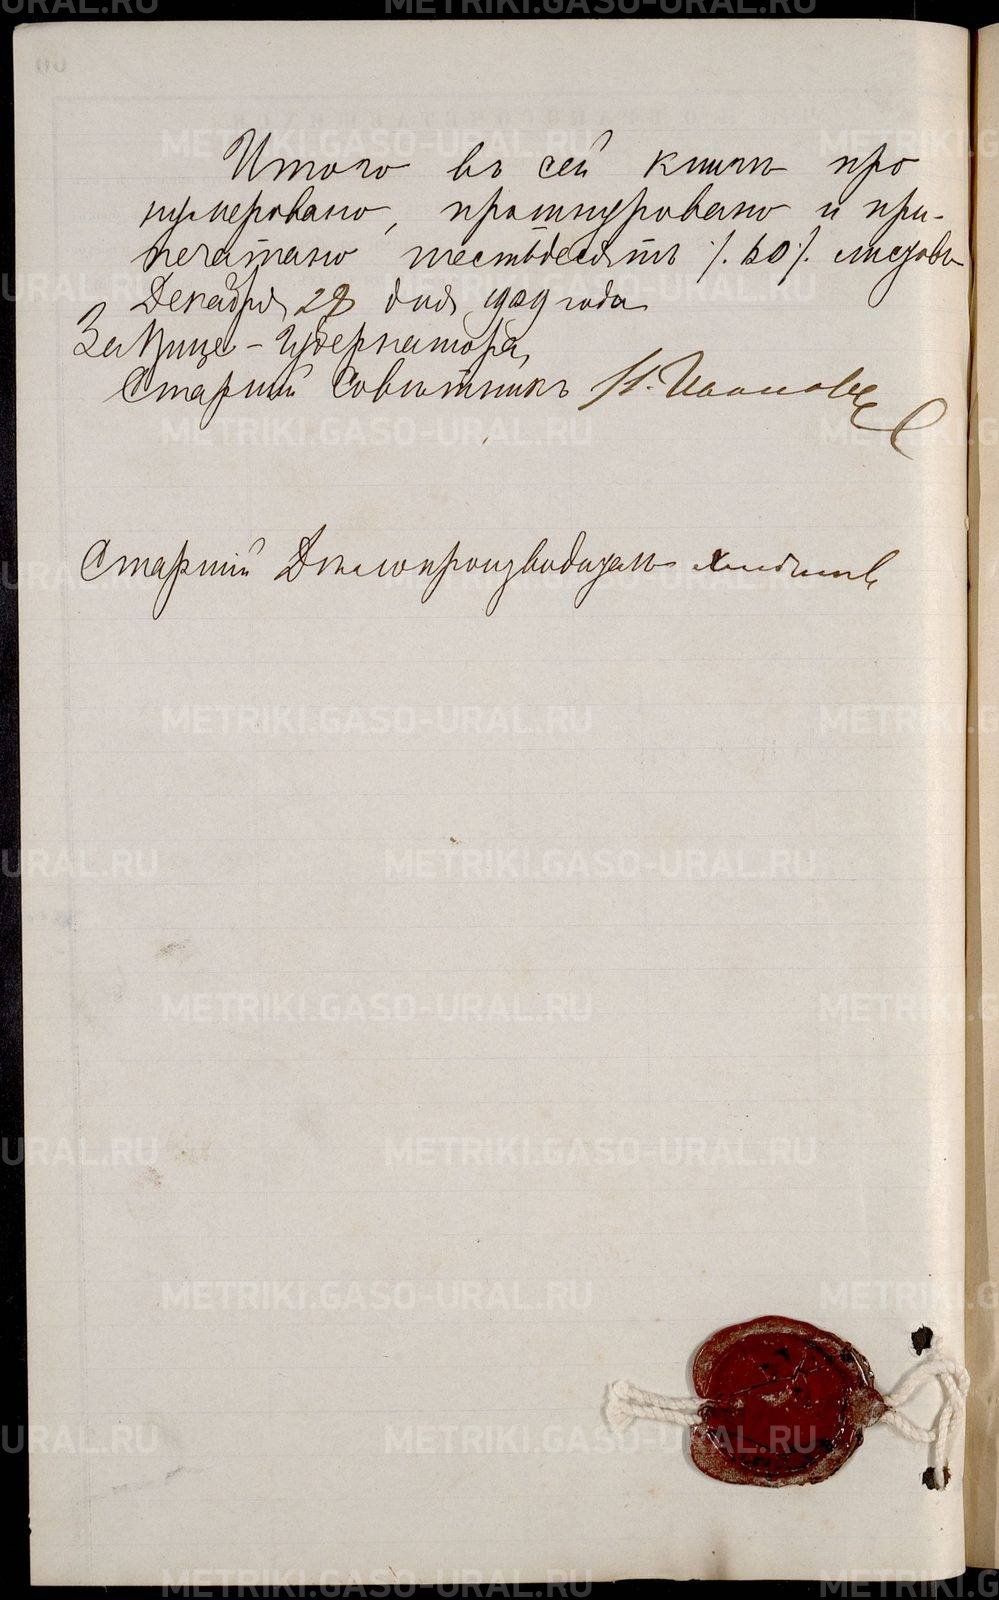 Итого въ сей книгѣ про
нумеровано, прошнуровано и при-
печатано шестьдесятъ /. 60 /. листовъ
Декабря 28 дня 1909 года
За Вице-Губернатора,
Старшій Совѣтникъ
Старшій Дѣлопроизводитель
METRIKI.GASO-URAL.RU